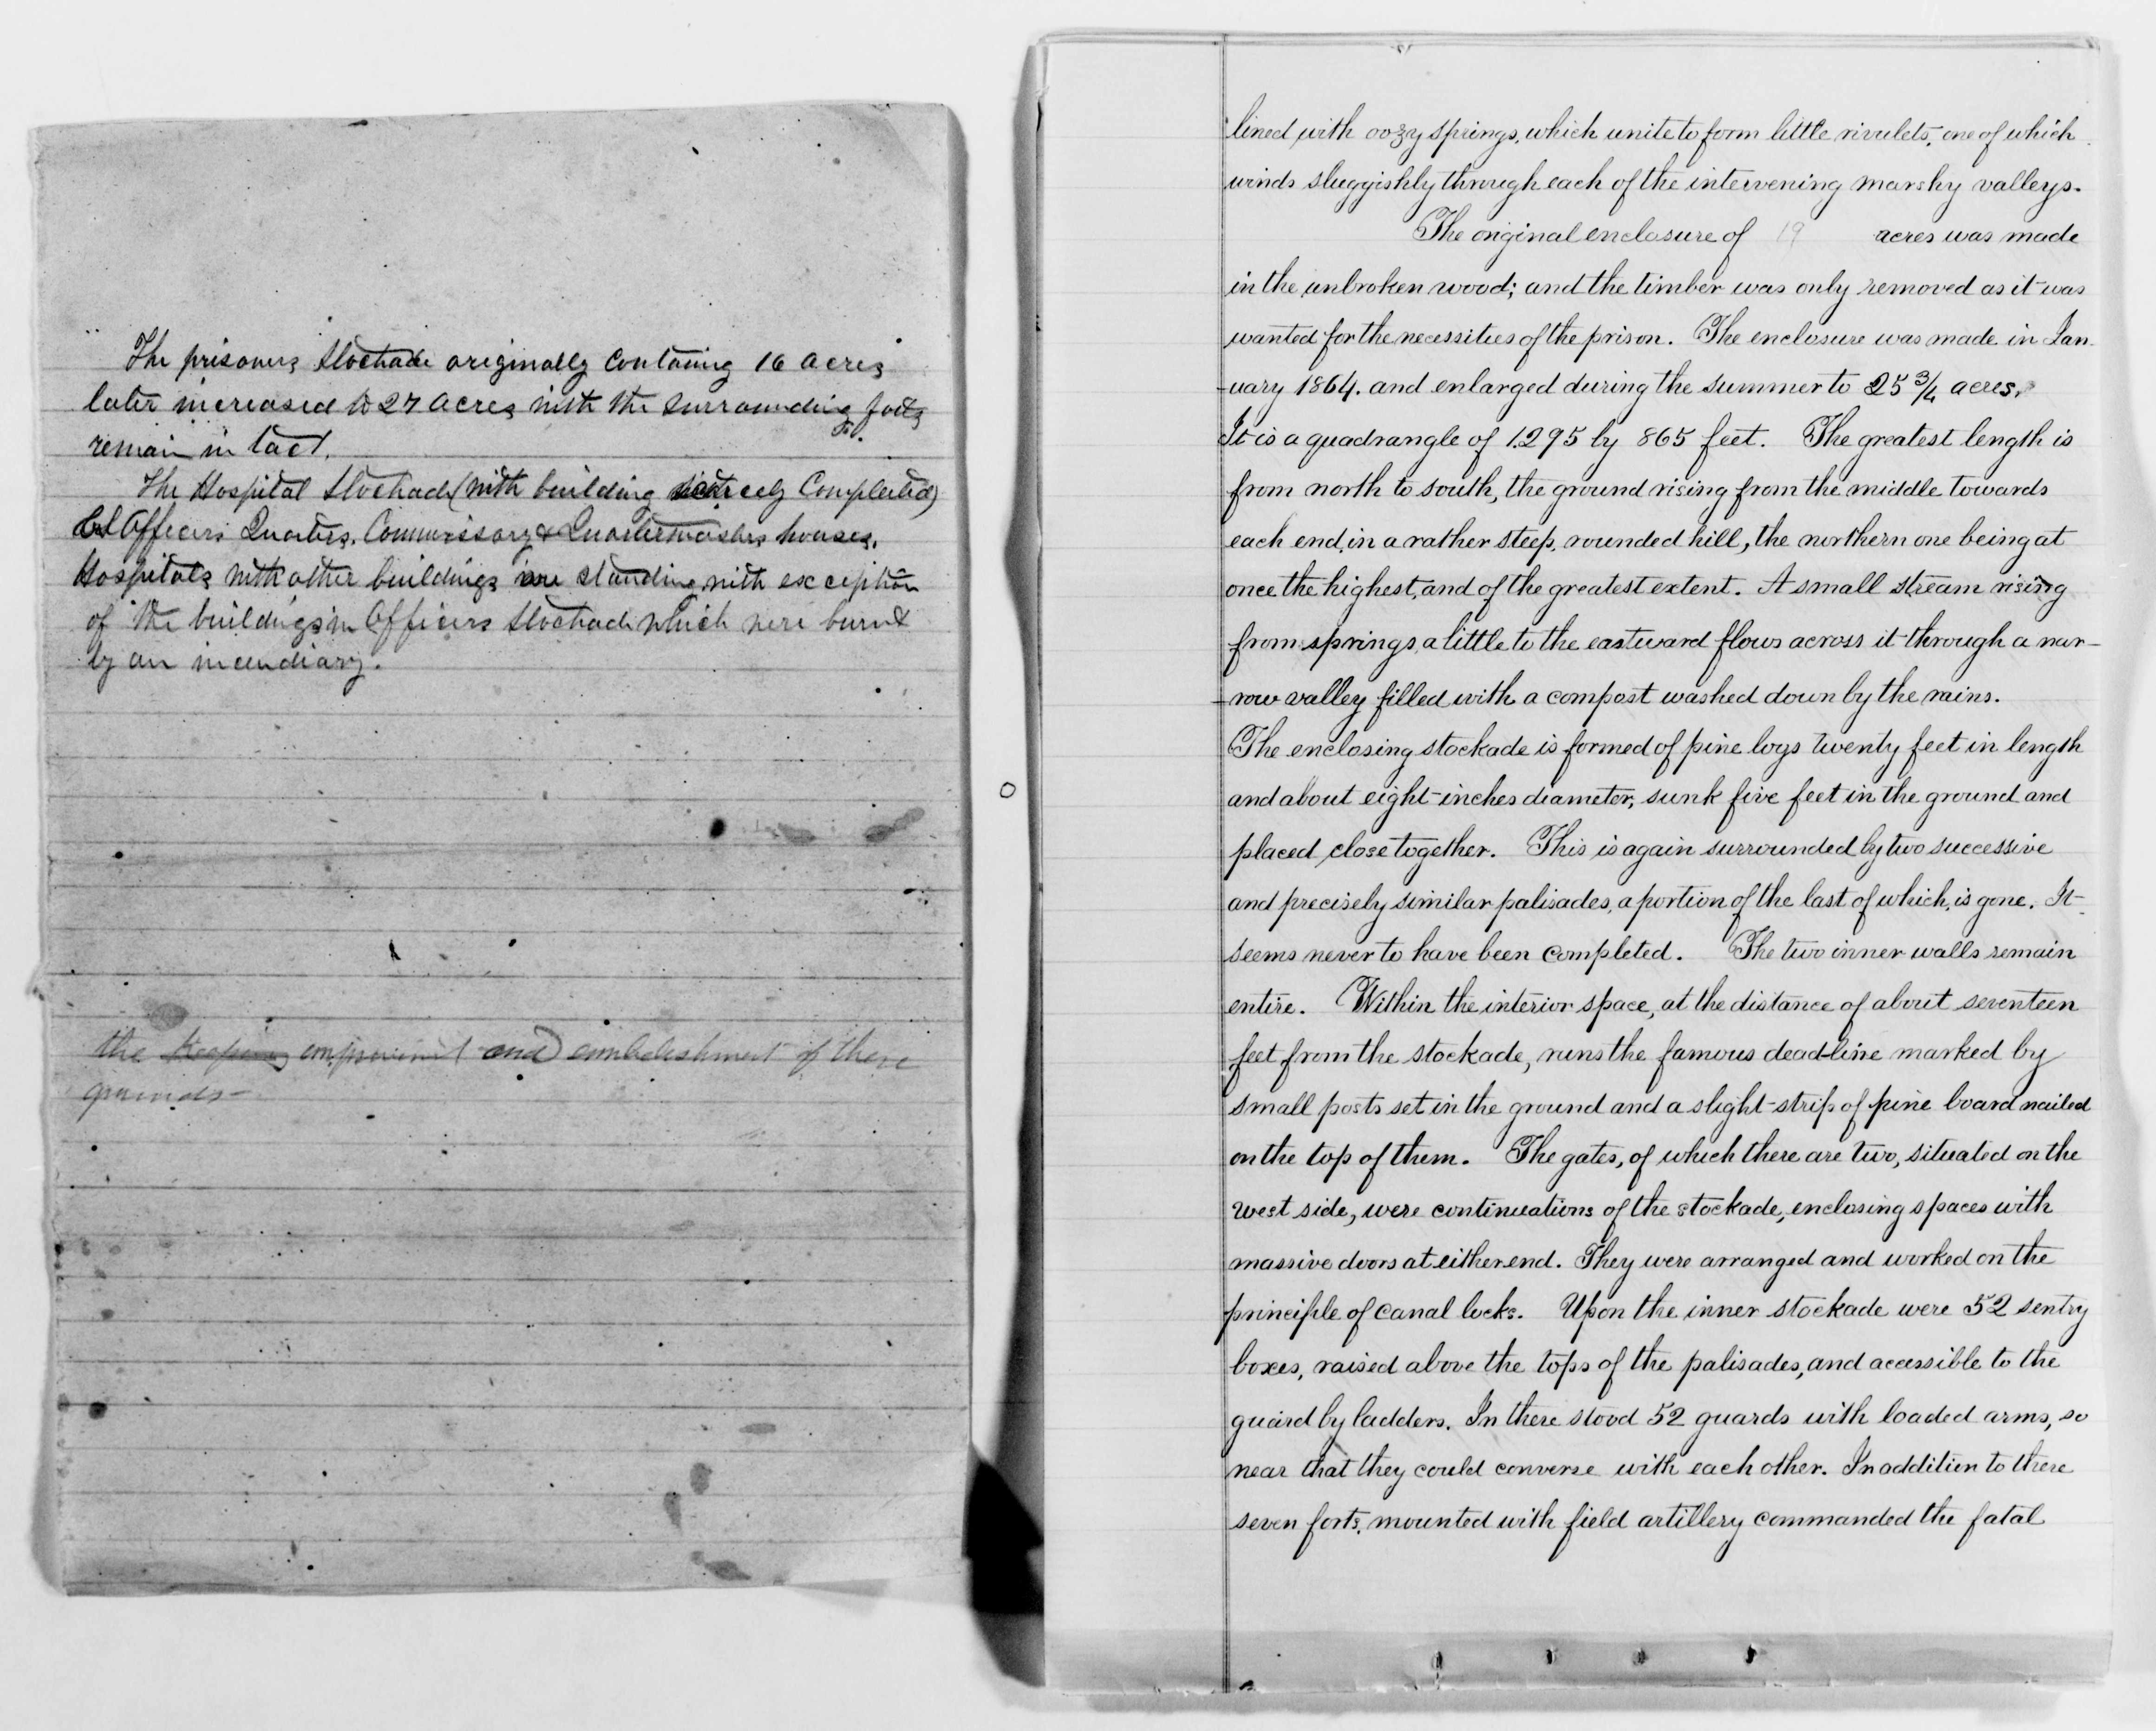 The prisoners Stockade originally Contaiing 16 acres
later increased to 27 acres with the surrounding forts
remain in tact.
The Hospital Stockade (with building scarcely Completed)
Officers Quarters. Commissary & Quartermasters houses.
Hospitals with other buildings are standing with exception
of the buildings in Officers Stockade which were burnt
by an incendiary.
the Keeping improvement and embelishment of these
grounds—
lined with oozy springs, which unite to form little rivulets, one of which
winds sluggishly through each of the intervening marshy valleys.
The original enclosure of 19 acres was made
in the unbroken wood; and the timber was only removed as it was
wanted for the necessities of the prison. The enclosure was made in Jan
-uary 1864. and enlarged during the summer to 25 3/4 acres.
It is a quadrangle of 1.295 by 865 feet. The greatest length is
from north to south, the ground rising from the middle towards
each end, in a rather steep, rounded hill, the northern one being at
once the highest, and of the greatest extent. A small stream rising
from springs a little to the eastward flows across it through a nar-
-row valley filled with a compost washed down by the rains.
The enclosing stockade is formed of pine logs twenty feet in length
and about eight inches diameter, sunk five feet in the ground and
placed close together. This is again surrounded by two successive
and precisely similar palisades, a portion of the last of which, is gone. It
seems never to have been completed. The two inner walls remain
entire. Within the interior space, at the distance of about seventeen
feet from the stockade, runs the famous dead-line marked by
small posts set in the ground and a slight strip of pine board nailed
on the top of them. The gates, of which there are two, situated on the
west side, were continuations of the stockade, enclosing spaces with
massive doors at either end. They were arranged and worked on the
principle of canal locks. Upon the inner stockade were 52 sentry
boxes, raised above the tops of the palisades, and accessible to the
guard by ladders. In these stood 52 guards with loaded arms, so
near that they could converse with each other. In addition to these
seven forts, mounted with field artillery commanded the fatal